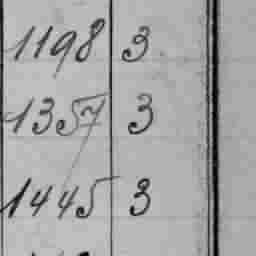 1198 3
1357 3
1445 3